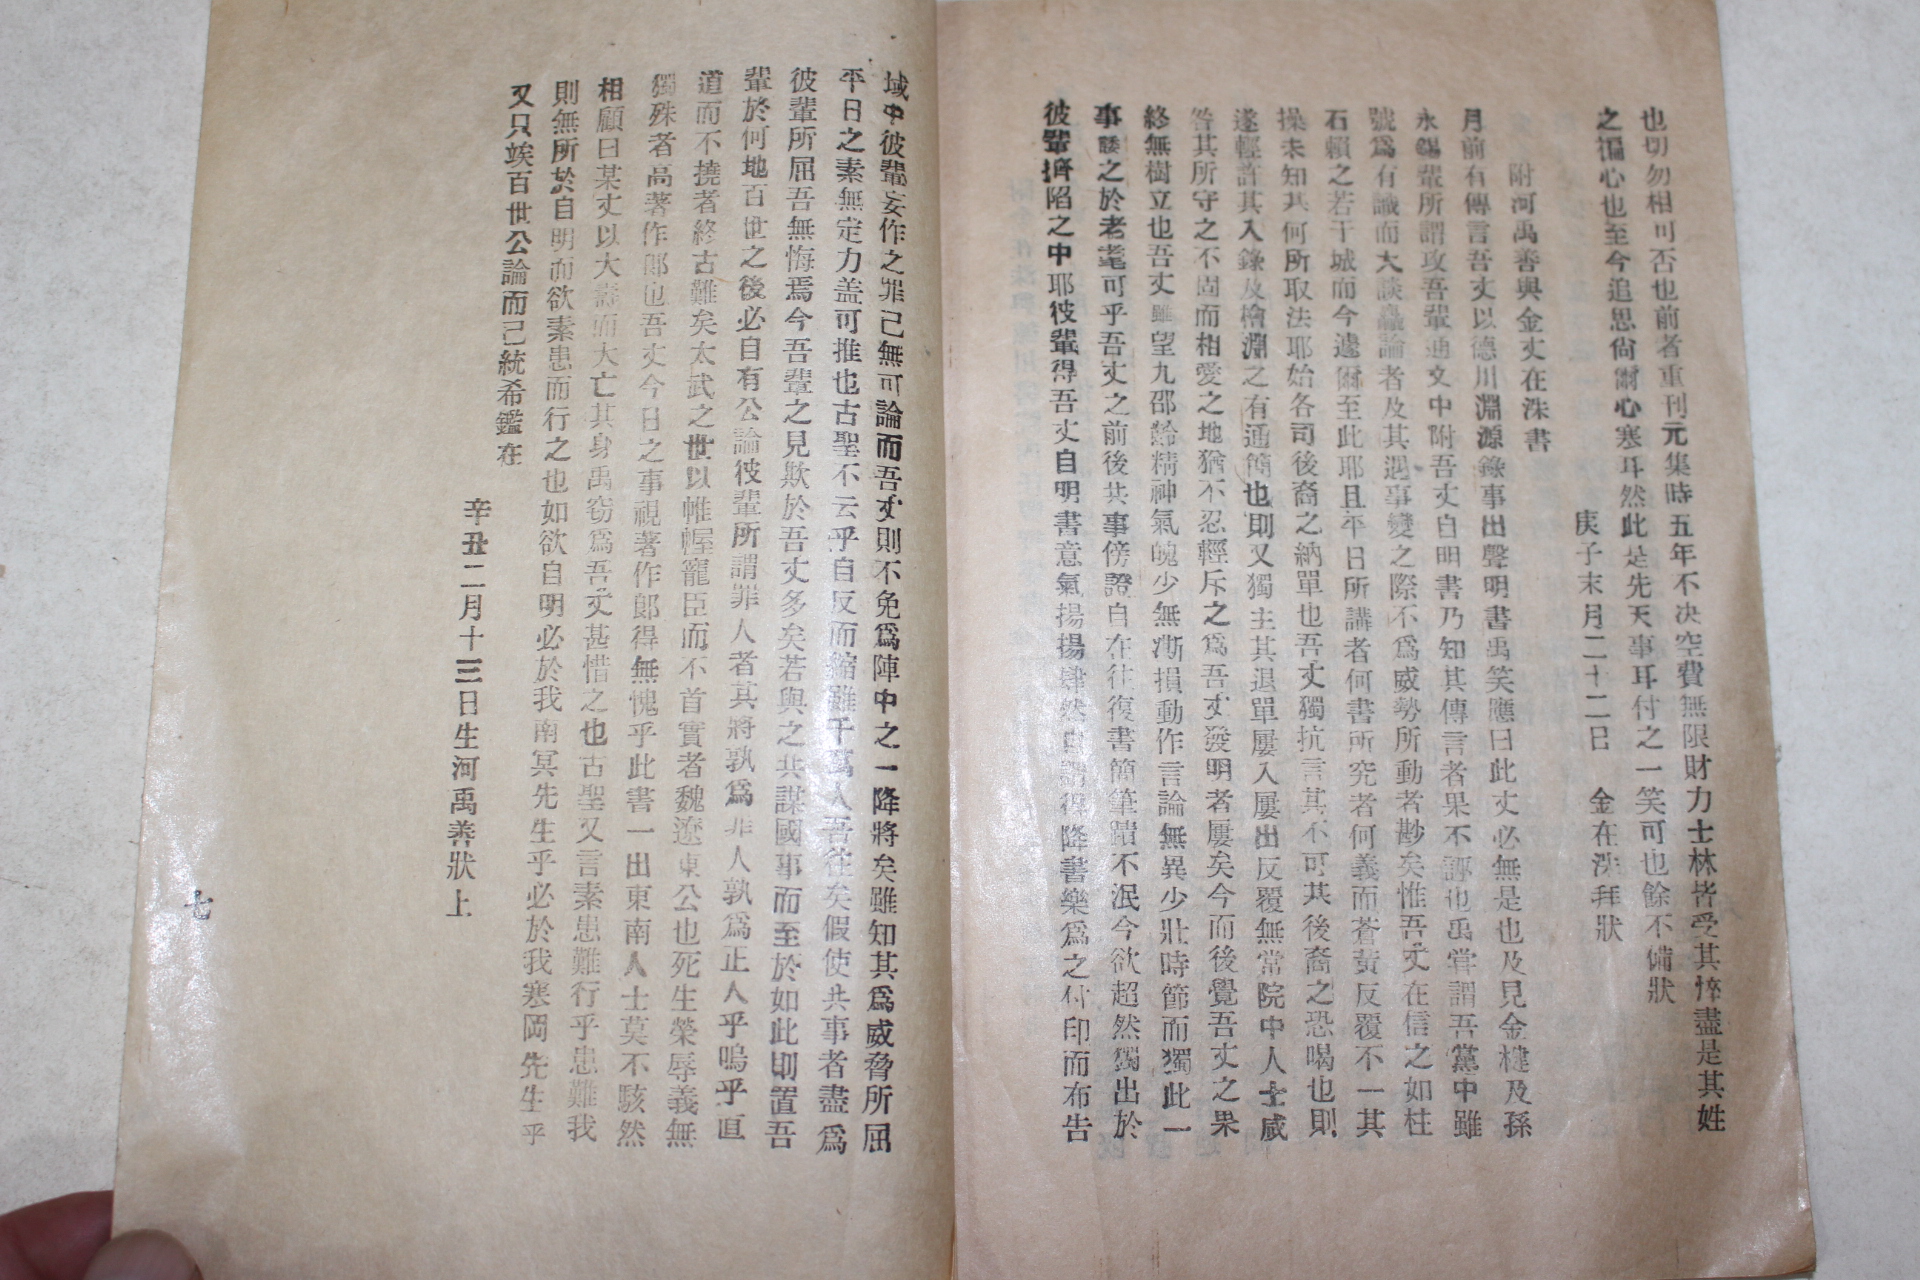 也切勿相可否也前者重刊元集時五年不決空費無限財力士林皆受其悴盡是其姓
之褊心也至今追思尙爾心寒耳然此是先天事耳付之一笑可也餘不備狀
庚子末月二十二日　金在洙拜狀
附河禹善與金丈在洙書
月前有傳言吾丈以德川淵源錄事出聲明書禹笑應曰此丈必無是也及見金槤及孫
永錫輩所謂攻吾輩通文中附吾丈自明書乃知其傳言者果不誣也禹嘗謂吾黨中雖
號爲有識而大談論者及其遇事變之際不爲威勢所動者尠矣惟吾丈在信之如柱
石賴之若干城而今遽爾至此耶且平日所講者何書所究者何義而蒼黃反覆不一其
操未知其何所取法耶始各司後裔之納單也吾丈獨抗言其不可其後裔之恐喝也則
遂輕許其入錄及檜淵之有通簡也則又獨主其退單屢入屢出反覆無常院中人士咸
咎其所守之不固而相愛之地猶不忍輕斥之爲吾丈發明者屢矣今而後覺吾丈之果
終無樹立也吾丈雖望九邵齡精神氣魄少無澌損動作言論無異少壯時節而獨此一
事諉之於老耄可乎吾丈之前後共事傍證自在往復書簡筆蹟不泯今欲超然獨出於
彼輩擠陷之中耶彼輩得吾丈自明書意氣揚揚肆然自謂得降書樂爲之付印而布告
域中彼輩妄作之罪已無可論而吾丈則不免爲陣中之一降將矣雖知其爲威脅所屈
平日之素無定力盖可推也古聖不云乎自反而縮雖千萬人吾往矣假使共事者盡爲
彼輩所屈吾無悔焉今吾輩之見欺於吾丈多矣若與之共謀國事而至於如此則置吾
輩於何地百世之後必自有公論彼輩所謂罪人者其將孰爲罪人孰爲正人乎嗚乎直
道而不撓者終古難矣太武之世以帷幄寵臣而不首實者魏遼東公也死生榮辱義無
獨殊者高著作郎也吾丈今日之事視著作郎得無愧乎此書一出東南人士莫不駭然
相顧曰某丈以大壽而大亡其身禹窃爲吾丈甚惜之也古聖又言素患難行乎患難我
則無所於自明而欲素患而行之也如欲自明必於我南冥先生乎必於我寒岡先生乎
又只竢百世公論而已統希鑑在
辛丑二月十三日生河禹善狀上
七